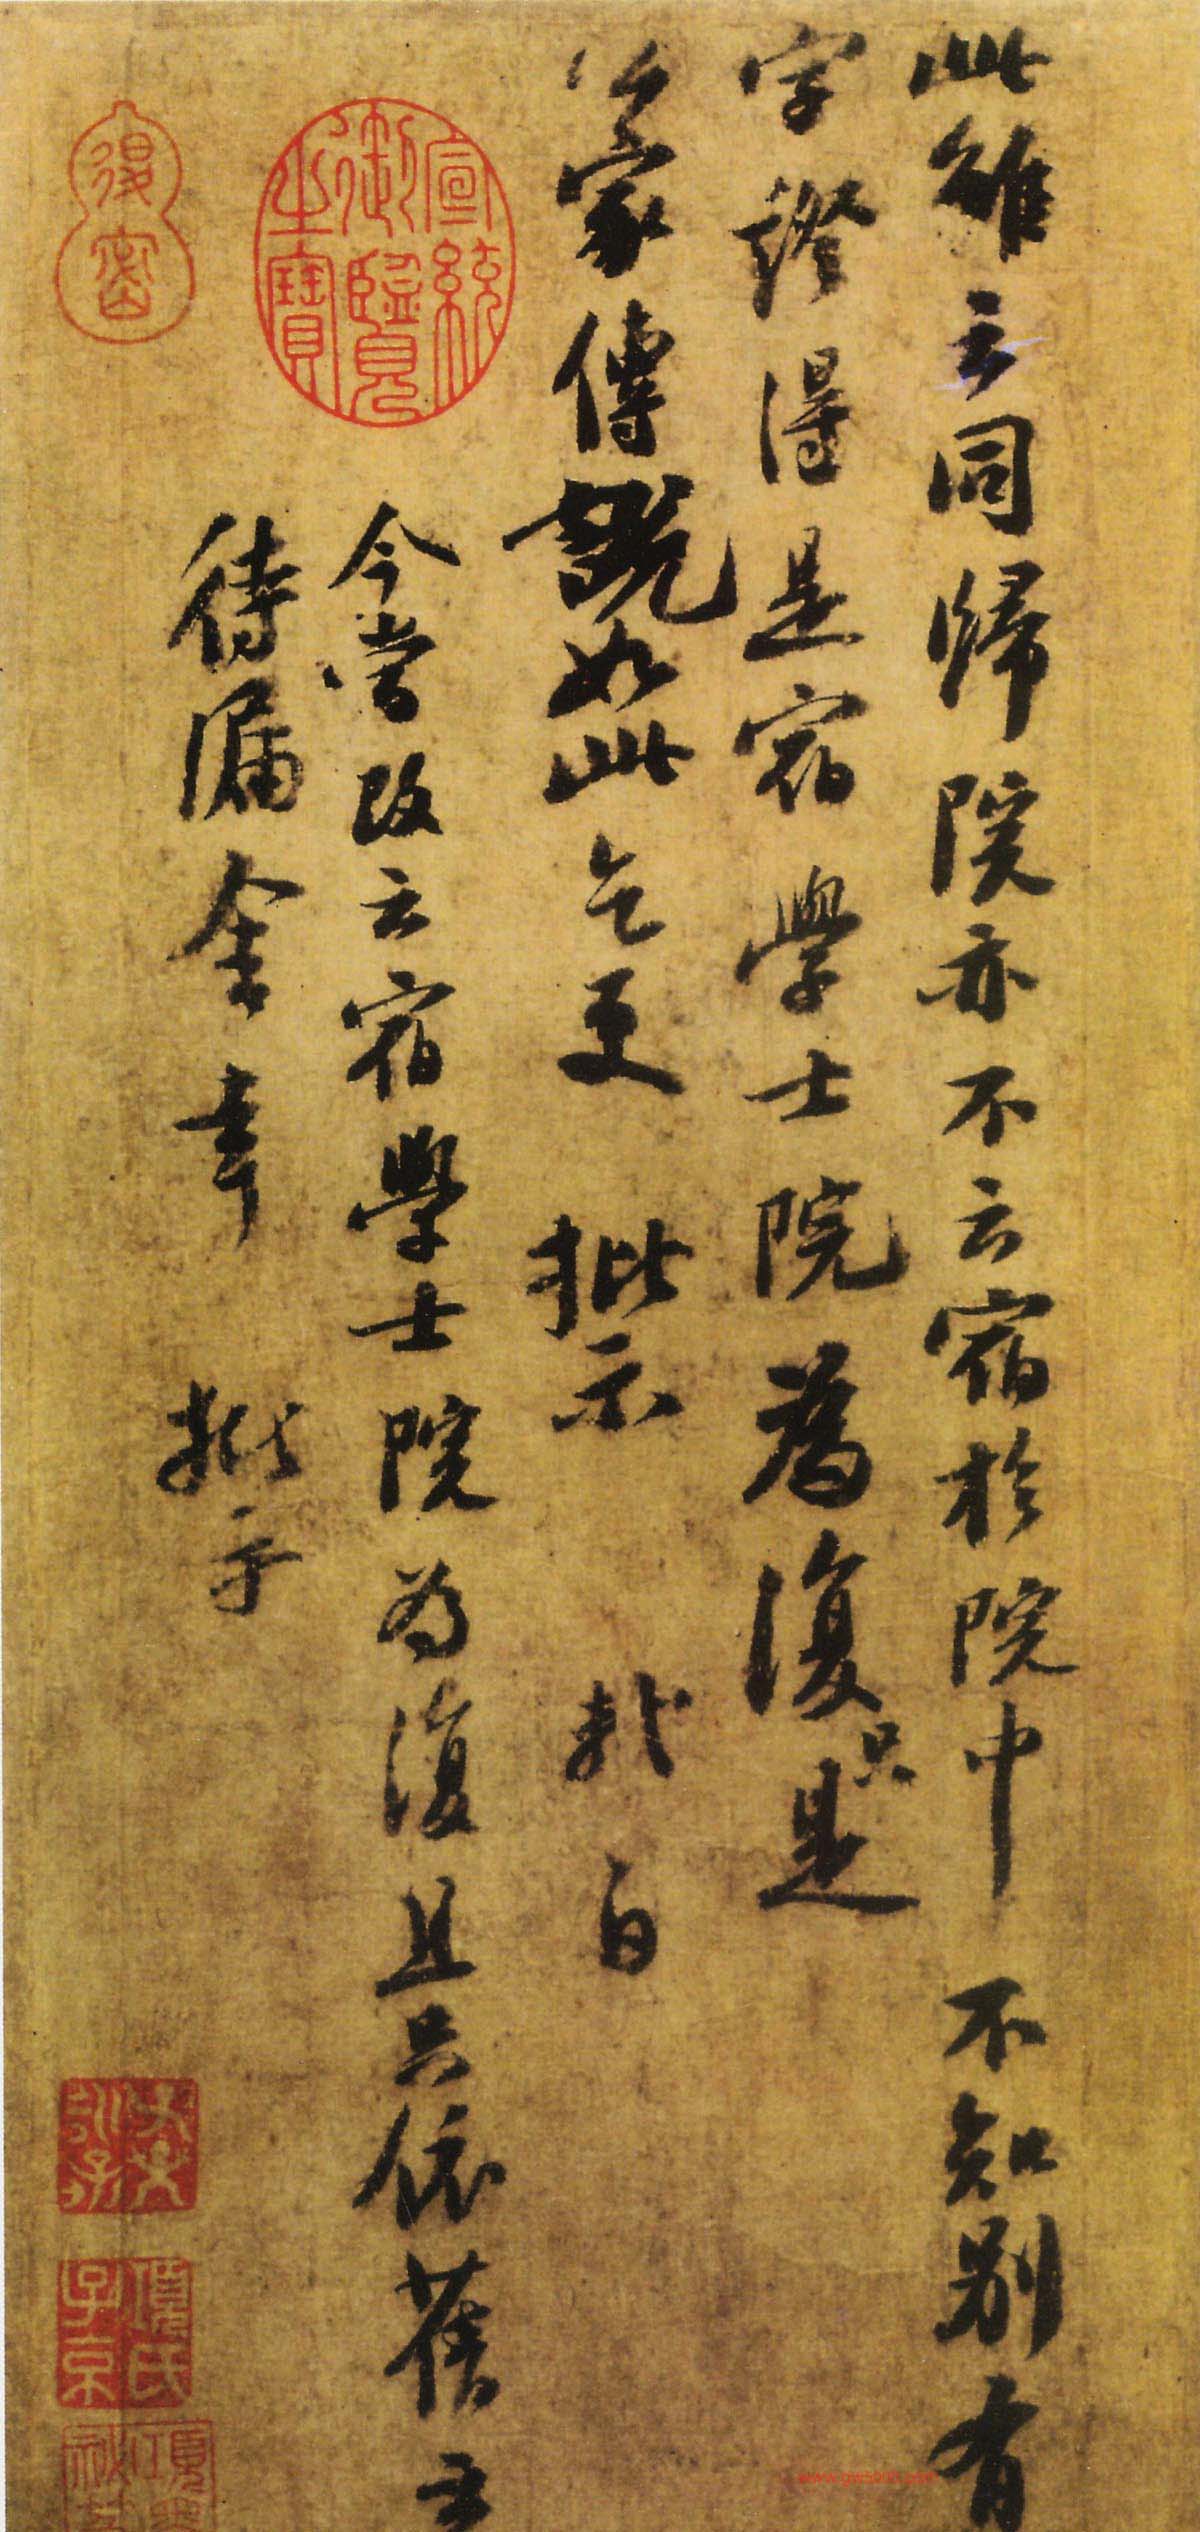 此雖云同歸院亦不云宿於院中 不知別有
字證得是宿學士院為復只是
蒙家傳說如此乞更 批示 軾白
今當改云宿學士院為復且只依舊云
待漏舍幸 批示
宣統
御覽
之寶
得密
項氏
子京